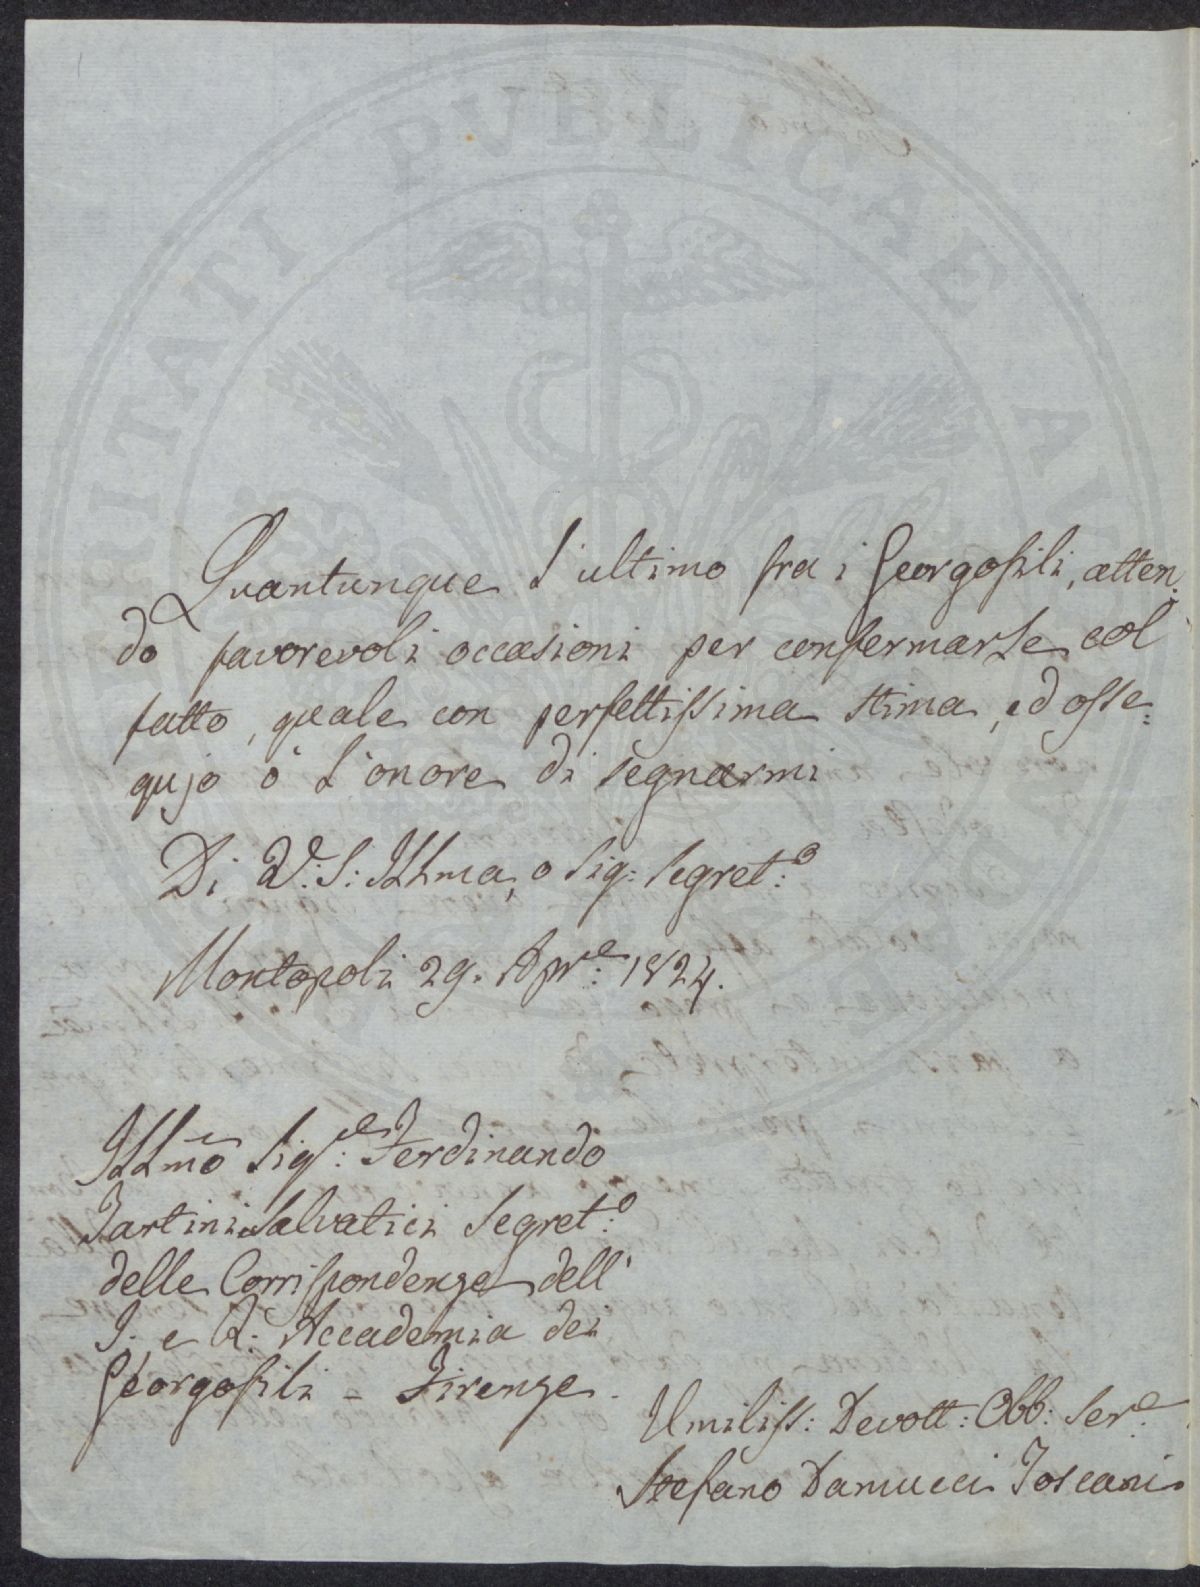 Quantunque l'ultimo fra i Georgofili, atten:
do favorevoli occasioni per confermarle col
fatto, quale con perfettissima stima, ed osse:
qujo ò l'onore di segnarmi
Di V: S: Illma, o Sig: Segret:o
Montopoli 29. Apre: 1824.
Illmo Sige: Ferdinando
Tartini Salvatici Segret:o
delle Corrispondenze dell'
I. e R. Accademia dei
Georgofili - Firenze.
Umiliss: Devott: Obb: Sere.
Stefano Damucci Toscani
PUBLICAE